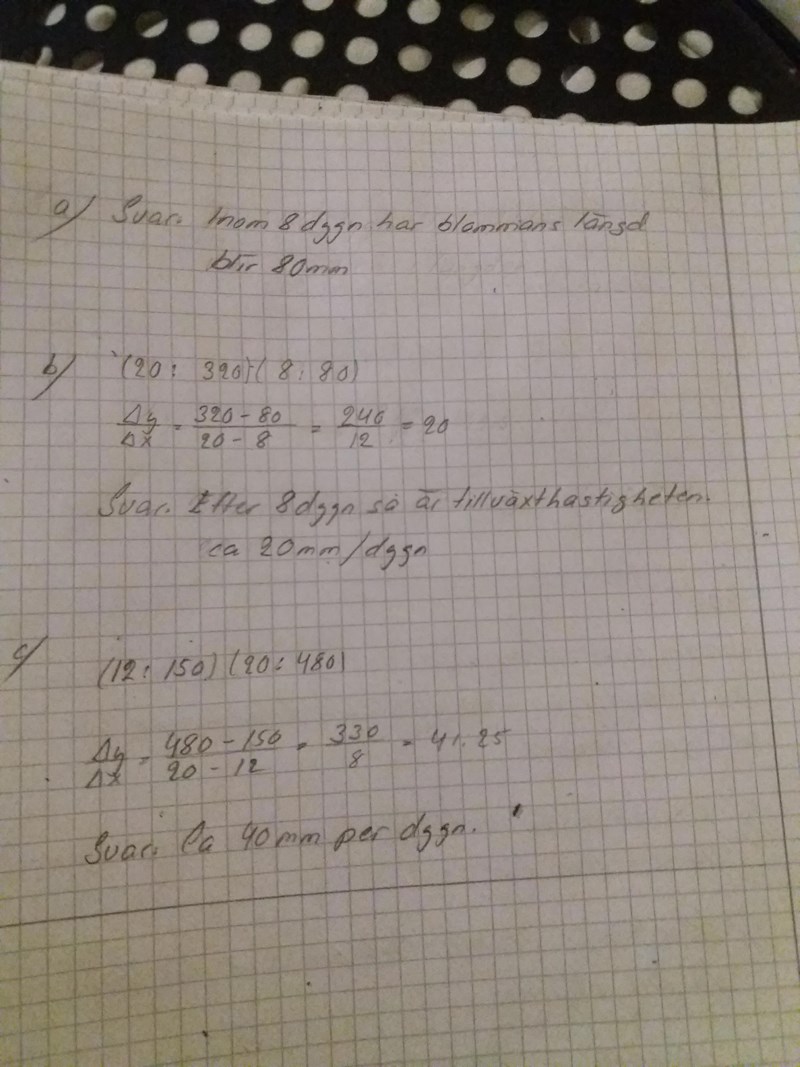 a) Svar. Inom 8 dygn har blommans längd
blir 80mm
b) (20: 320) (8: 80)
Δy/Δx = 320-80/20-8 = 240/12 = 20
Svar. Efter 8 dygn så är tillväxthastigheten.
ca 20mm/dygn
c) (12: 150) (20: 480)
Δy/Δx = 480-150/20-12 = 330/8 = 41.25
Svar. Ca 40mm per dygn.